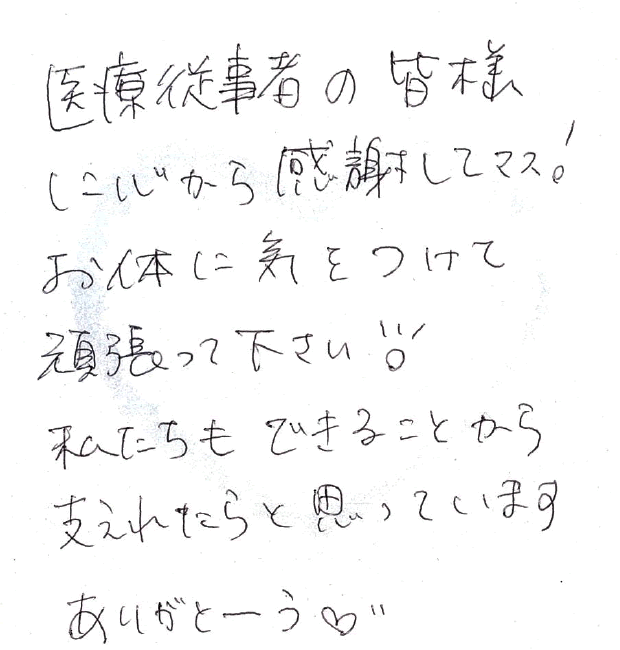 医療従事者の皆様
に心から感謝してマス!
お体に気をつけて
頑張って下さい!!
私たちも できることから
支えれたらと思っています
ありがとーう♡"